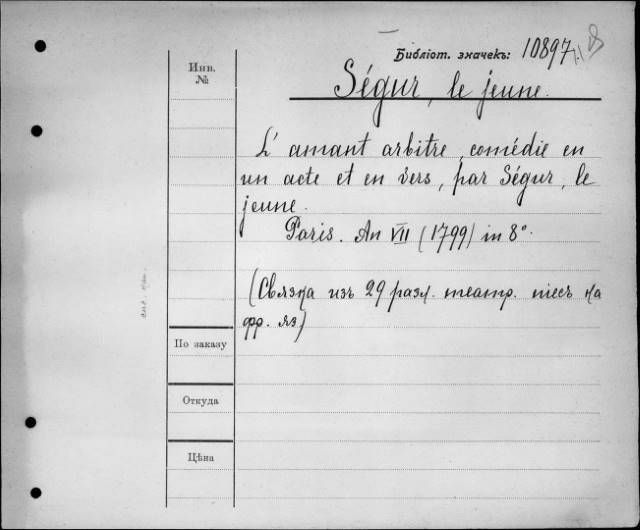 Библіот. значекъ: 10897
Инв.
№
Ségur, le jeune.
L'amant arbitre, comédie en
un acte et en vers, par Ségur, le
jeune.
Paris. An VII (1799) in 8°.
(Связка изъ 29 разл. театр. піесъ на
фр. яз)
По заказу
Откуда
Цѣна